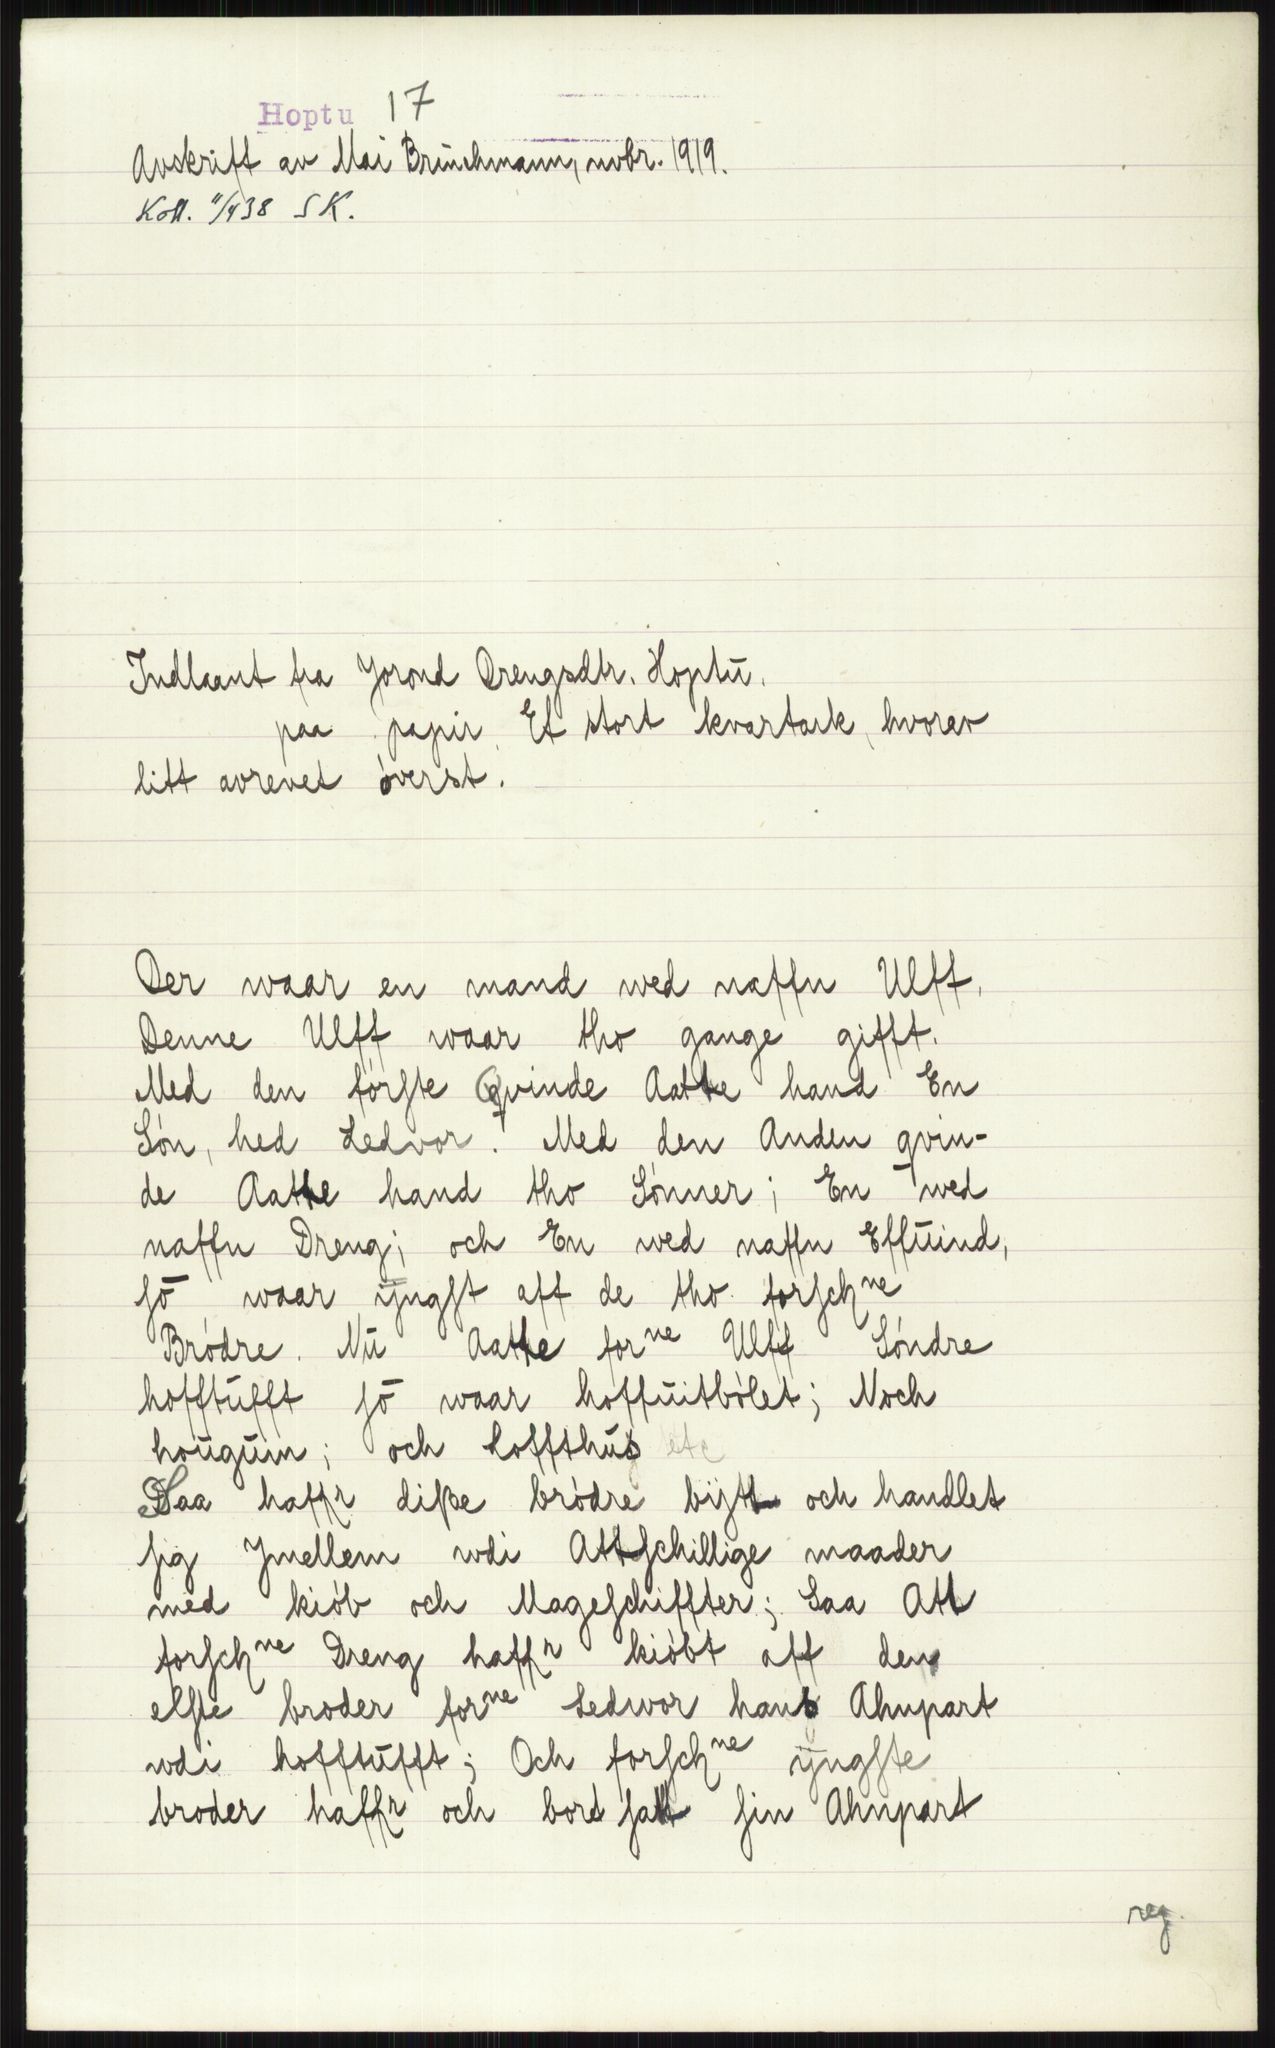 Hoptu 17
Avskrift av Mai Brüchmann, novbr. 1919.
Koll. 11/4 38 SK.
Indlaant fra Jorond Drengsdtr. Hoptū.
paa papir. Et stort kvartark, hvorav
litt avrevet øverst.
Der waar en mand wed naffn Ulff.
Denne Ulff waar tho gange gifft.
Med den førſte Qvinde Aatte hand En
Søn, hed Ledvor. Med den Anden qvin-
de Aatte hand tho Sønner; En wed
naffn Dreng; och En wed naffn Effūind,
ſō waar ÿngſt aff de tho forſchne
Brødre. Nū Aatte forne Ulff Søndre
hofftūfft ſō waar hoffūitbølet; Noch
hoūgūm; och loffthūs etc
Saa haffr diße brødre bÿtt och handlet
ſig Jmellem wdi Attſchillige maader
med kiøb och Mageſchiffter; Saa Att
forſchne Dreng haffr kiøbt aff den
elſte broder forne Ledwor hans Ahnpart
wdi hofftūfft; Och forſchne ÿngſte
broder haffr och bort ſatt ſin Ahnpart
reg.